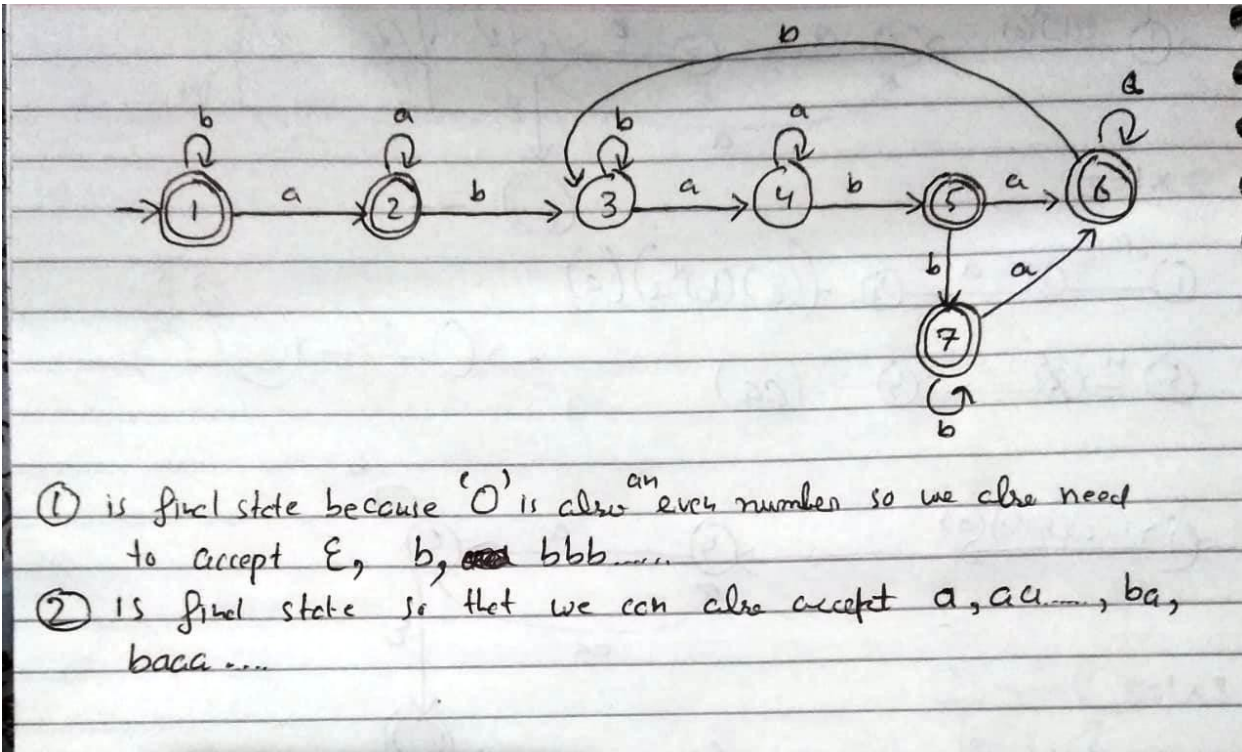 b
b a b a a
1 a 2 b 3 a 4 b 5 a 6
b a
7
b
① is final state because '0' is also an even number so we also need
to accept Ɛ, b, bbb......
② is final state so that we can also accept a, aa....., ba,
baaa ....